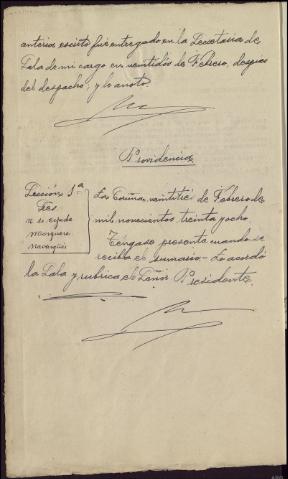 anterior escrito fué entregado en la Secretaria de
Sala de mi cargo en veintidos de Febrero, despues
del despacho; y lo anoto.
Providencia
Sección 1ª
Sres.
La Coruña, veintitrés de Febrero de
mil novecientos treinta y ocho
Tengase presente cuando se
reciba el sumario. Lo acordó
la Sala y rubrica el Señor Presidente.